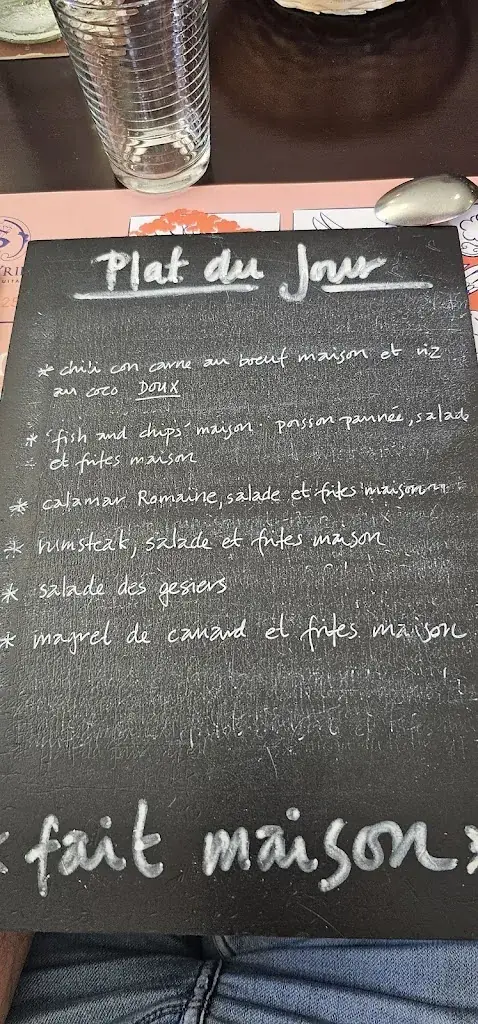 Plat du Jour
* chili con carne au boeuf maison et riz
au coco DOUX
* "fish and chips" maison. poisson pannée, salade
et frites maison
* calamar Romaine, salade et frites maison
* rumsteak, salade et frites maison
* salade des gesiers
* magret de canard et frites maison
* fait maison *